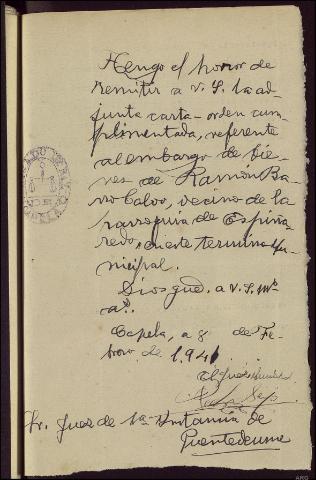 Tengo el honor de
remitir a V. S. la ad-
junta carta-orden cum-
plimentada, referente
al embargo de bie-
nes de Ramón Ba
rro Calvo, vecino de la
parroquia de Espiña
redo, en este termino Mu-
nicipal.
Dios gue. a V. S. Ms.
as.
Capela, a 8 de Fe-
brero de 1941
El Juez
Sr. Juez de 1ª Instancia de
Puentedeume